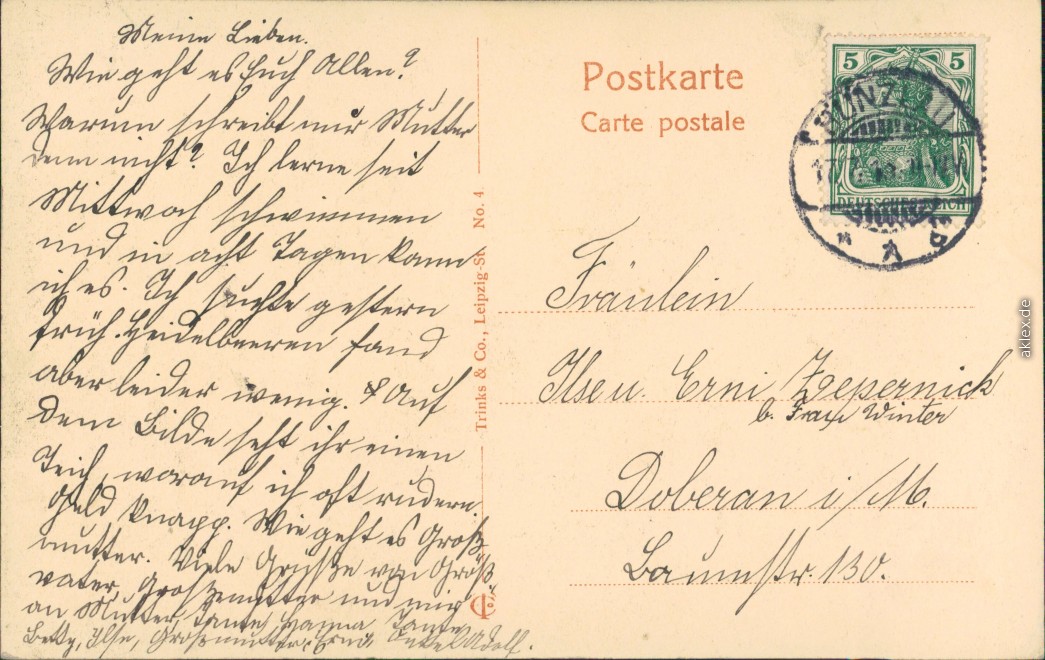 Meine Lieben.
Wie geht es Euch Allen?
Warum schreibt nur Mutter
denn nicht? Ich lerne seit
Mittwoch schwimmen
und in acht Tagen kann
ich es. Ich suchte gestern
früh. Heidelbeeren fand
aber leider wenig. Auf
dem Bilde seht ihr einen
Teich, worauf ich oft rudern.
Geld knapp. Wie geht es Groß
mutter. Viele Grüße von Groß
vater, Großmutter und mir
an Mutter, Tante Hanna, Tante
Betty, Ilse, Grossmutter, Erni, Onkel Adolf.
Trinks & Co., Leipzig-St. No. 4
Postkarte
Carte postale
5 5
DEUTSCHES REICH
BUNZLAU
17.7.
* b
Fräulein
Ilse u. Erni Zepernick
b. Frau Winter
Doberan i/M.
Baumstr. 130.
aklex.de